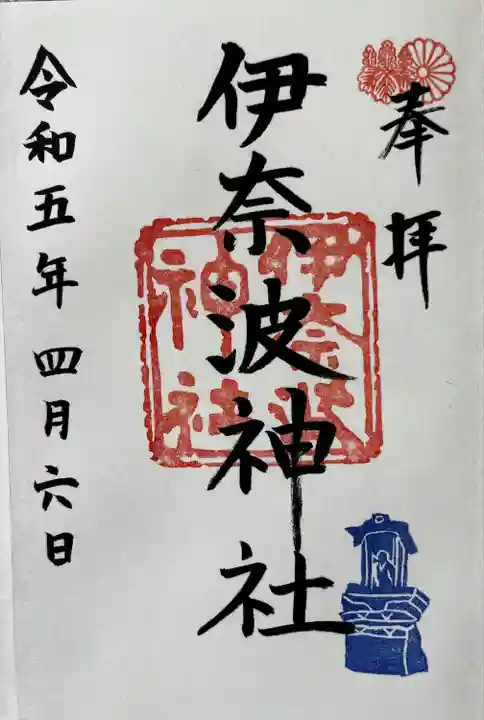 奉拝
伊奈波神社
伊奈波
神社
令和五年四月六日